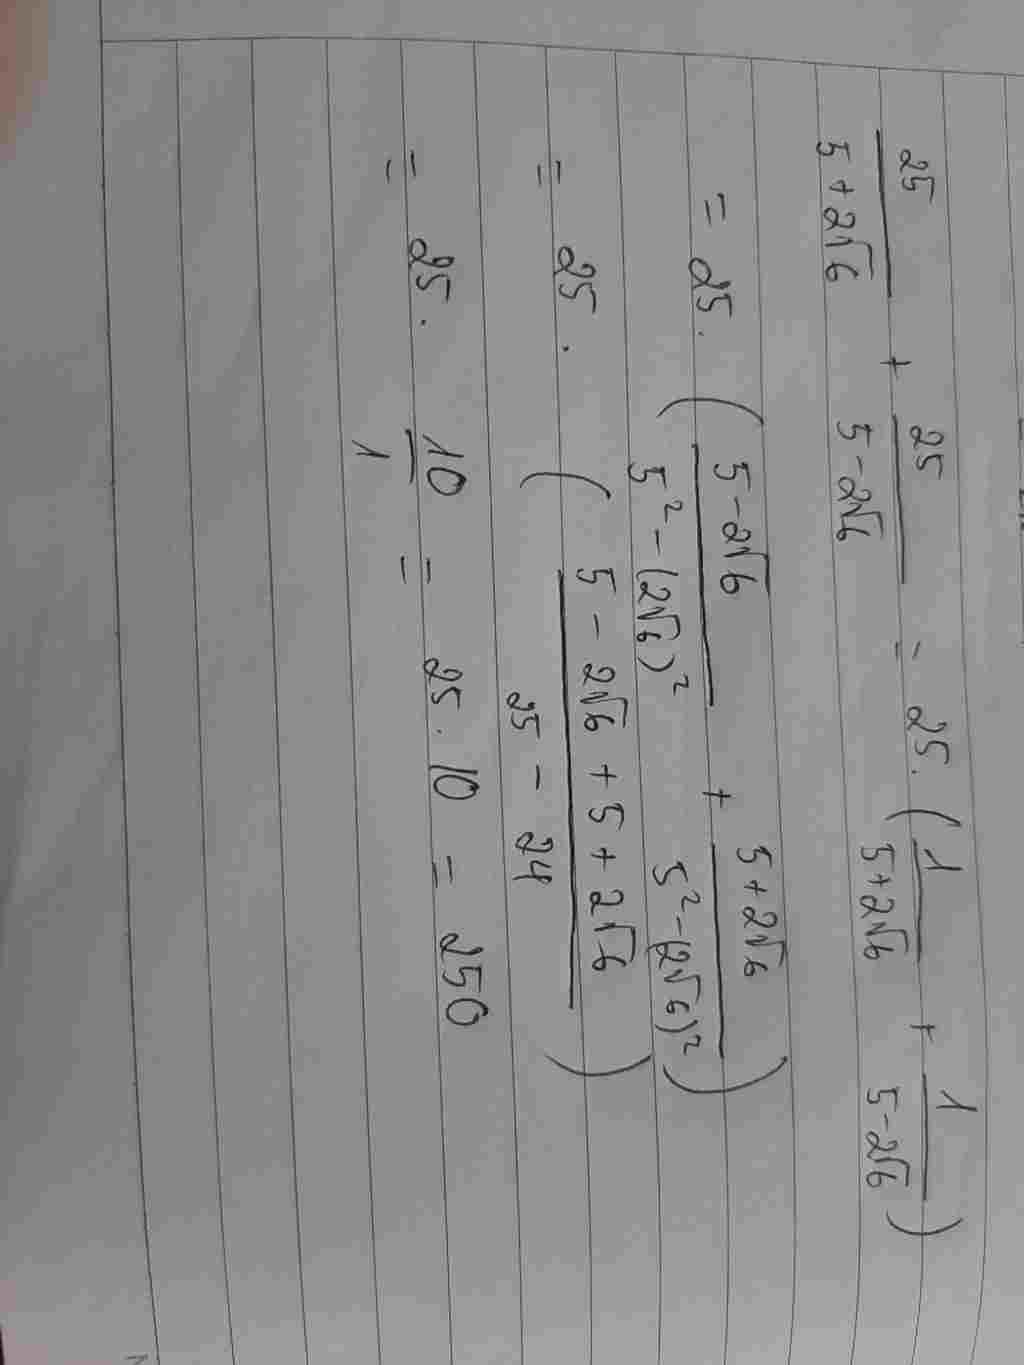 25/(5+2√6) + 25/(5-2√6) = 25.(1/(5+2√6) + 1/(5-2√6))
= 25. ((5-2√6)/(5²-(2√6)²) + (5+2√6)/(5²-(2√6)²))
= 25. ((5 - 2√6 + 5 + 2√6)/(25 - 24))
= 25. 10/1 = 25. 10 = 250